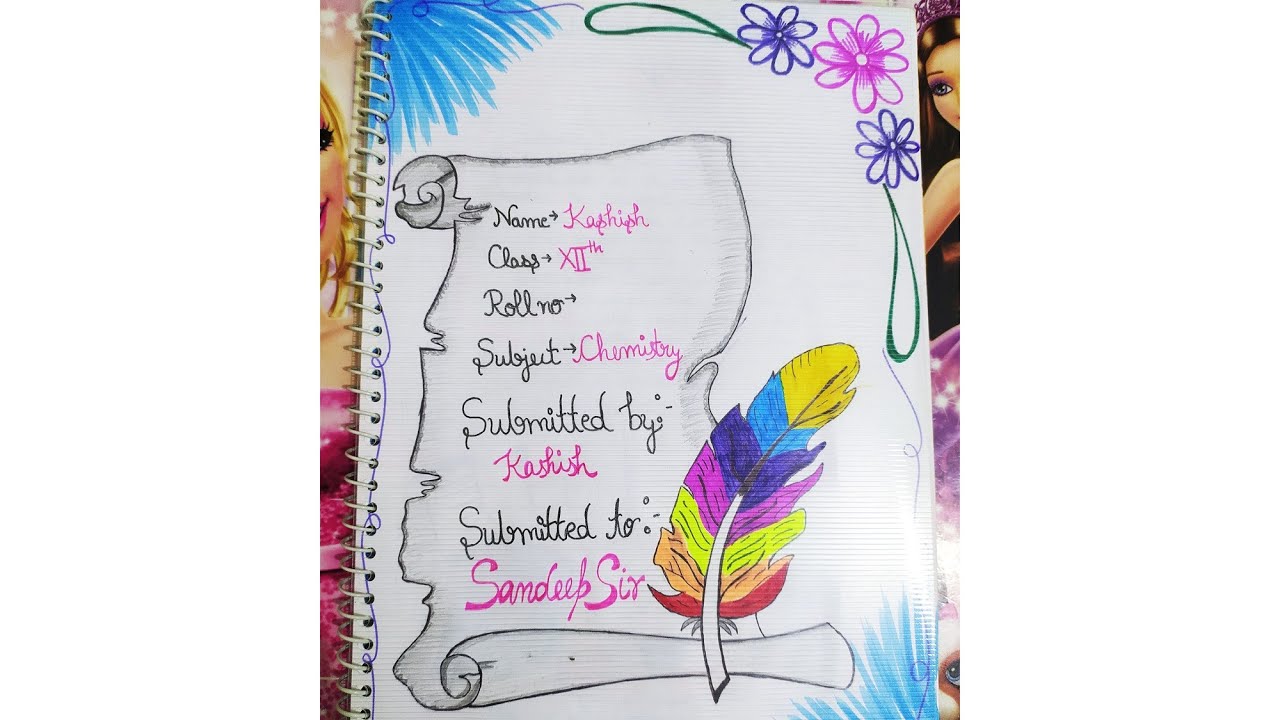 Name→ Kashish
Class→ XIIth
Roll no→
Subject→ Chemistry
Submitted by:-
Kashish
Submitted to:-
Sandeep Sir